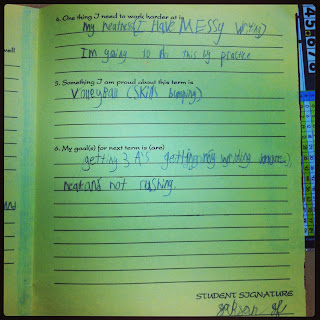 well
4. One thing I need to work harder at is
My neatness(I HAVE MESSy writing)
I'm going to do this by practice
5. Something I am proud about this term is
Volleyball (SKills bumping)
6. My goal(s) for next term is (are)
getting 3 A's getting my writing
neat and not rushing.
STUDENT SIGNATURE